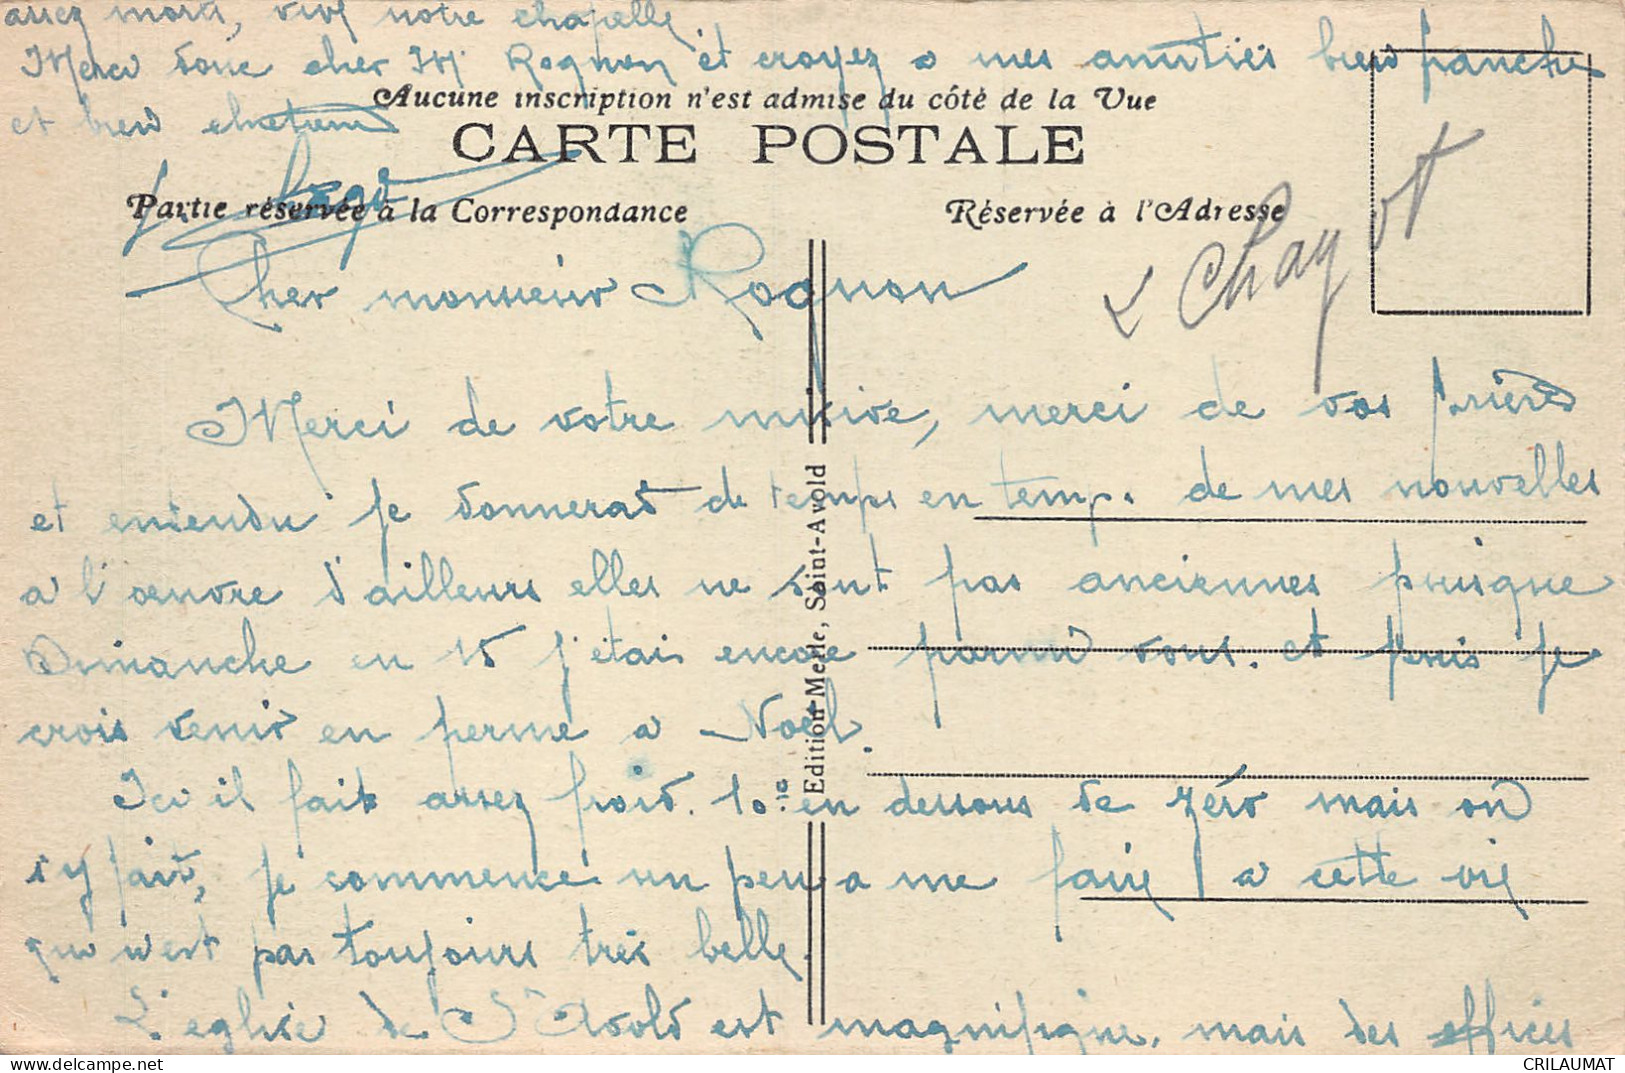 assez morts, vive notre chapelle
Merci donc cher M Rognon et croyez a mes amitiés bien franche
et bien
Aucune inscription n'est admise du côté de la Vue
CARTE POSTALE
Partie réservée à la Correspondance
Réservée à l'Adresse
Chayot
Cher monsieur Rognon
Merci de votre missive, merci de vos prières
et entendu je donnerai de temps en temp. de mes nouvelles
a l'oeuvre d'ailleurs elles ne sont pas anciennes puisque
Dimanche en 15 j'étais encore parmi vous. et puis je
crois venir en perme a Noël.
Ici il fait assez froid. 10 en dessous de zéro mais on
s'y fait, je commence un peu a me faire a cette vie
qui n'est pas toujours très belle.
L'eglise de St Avold est magnifique, mais des offices
Edition Merle, Saint-Avold
CRILAUMAT